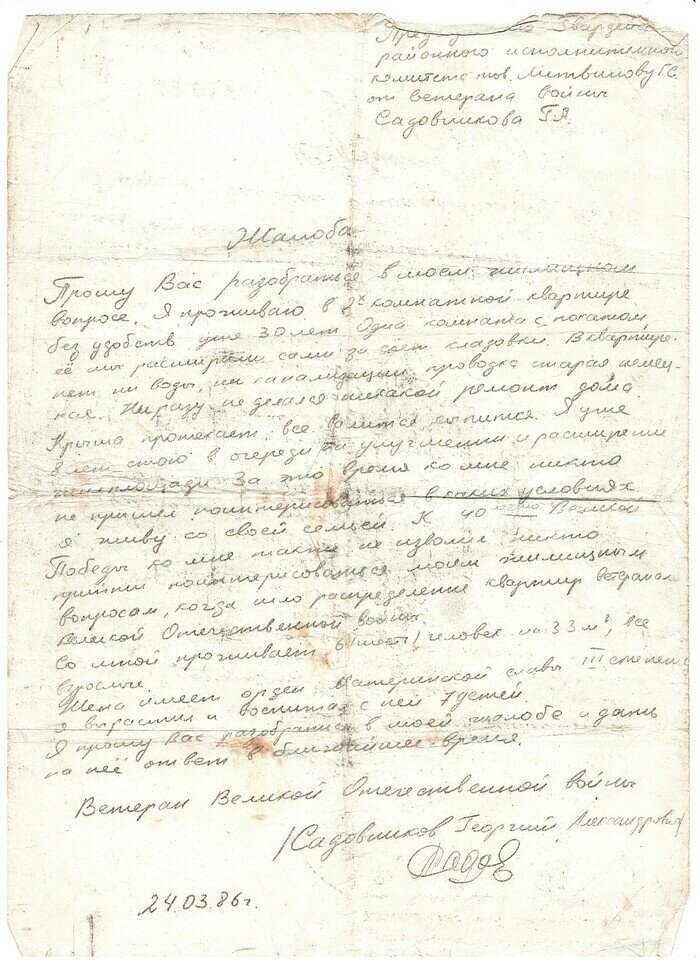 районного исполнительного
комитета тов. Литвинову Г.С.
от ветерана войны
Садовникова Г.А.
Жалоба
Прошу Вас разобраться в моём жилищном
вопросе. Я проживаю в 2х комнатной квартире
без удобств уже 30 лет Одна комната с покатом,
её мы расширили сами за счёт кладовки. В квартире
нет ни воды, ни канализации, проводка старая немец-
кая. Ни разу не делался никакой ремонт дома.
Крыша протекает, все валится сыпится. Я уже
лет стою в очереди на улучшении и расширении
жилплощади За это время ко мне никто
не пришел поинтерисоваться в каких условиях
я живу со своей семьёй. К 40 летию Великой
Победы ко мне также не изволил никто
придти поинтерисоваться моим жилищным
вопросам, когда шло распределение квартир ветеранам
Великой Отечественной войны.
Со мной проживает 6 (шесть) человек на 33 м², все
взрослые.
Жена имеет орден Материнской славы III степени
я вырастил и воспитал с ней 7 детей
Я прошу Вас разобраться в моей жалобе и дать
на неё ответ в ближайшее время.
Ветеран Великой Отечественной войны
/Садовников Георгий Александрович
24.03.86г.